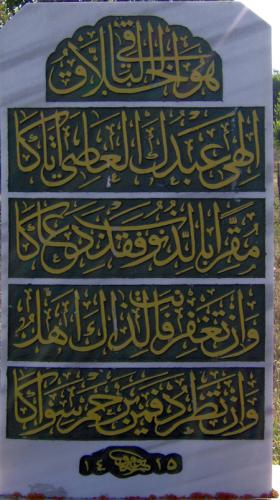 هو الخلاق الباقي
إلهي عبدك العاصي أتاكا
مقرا بالذنوب وقد دعاكا
وإن تغفر فأنت لذاك أهل
وإن تطرد فمن يرحم سواكا
١٤٢٥